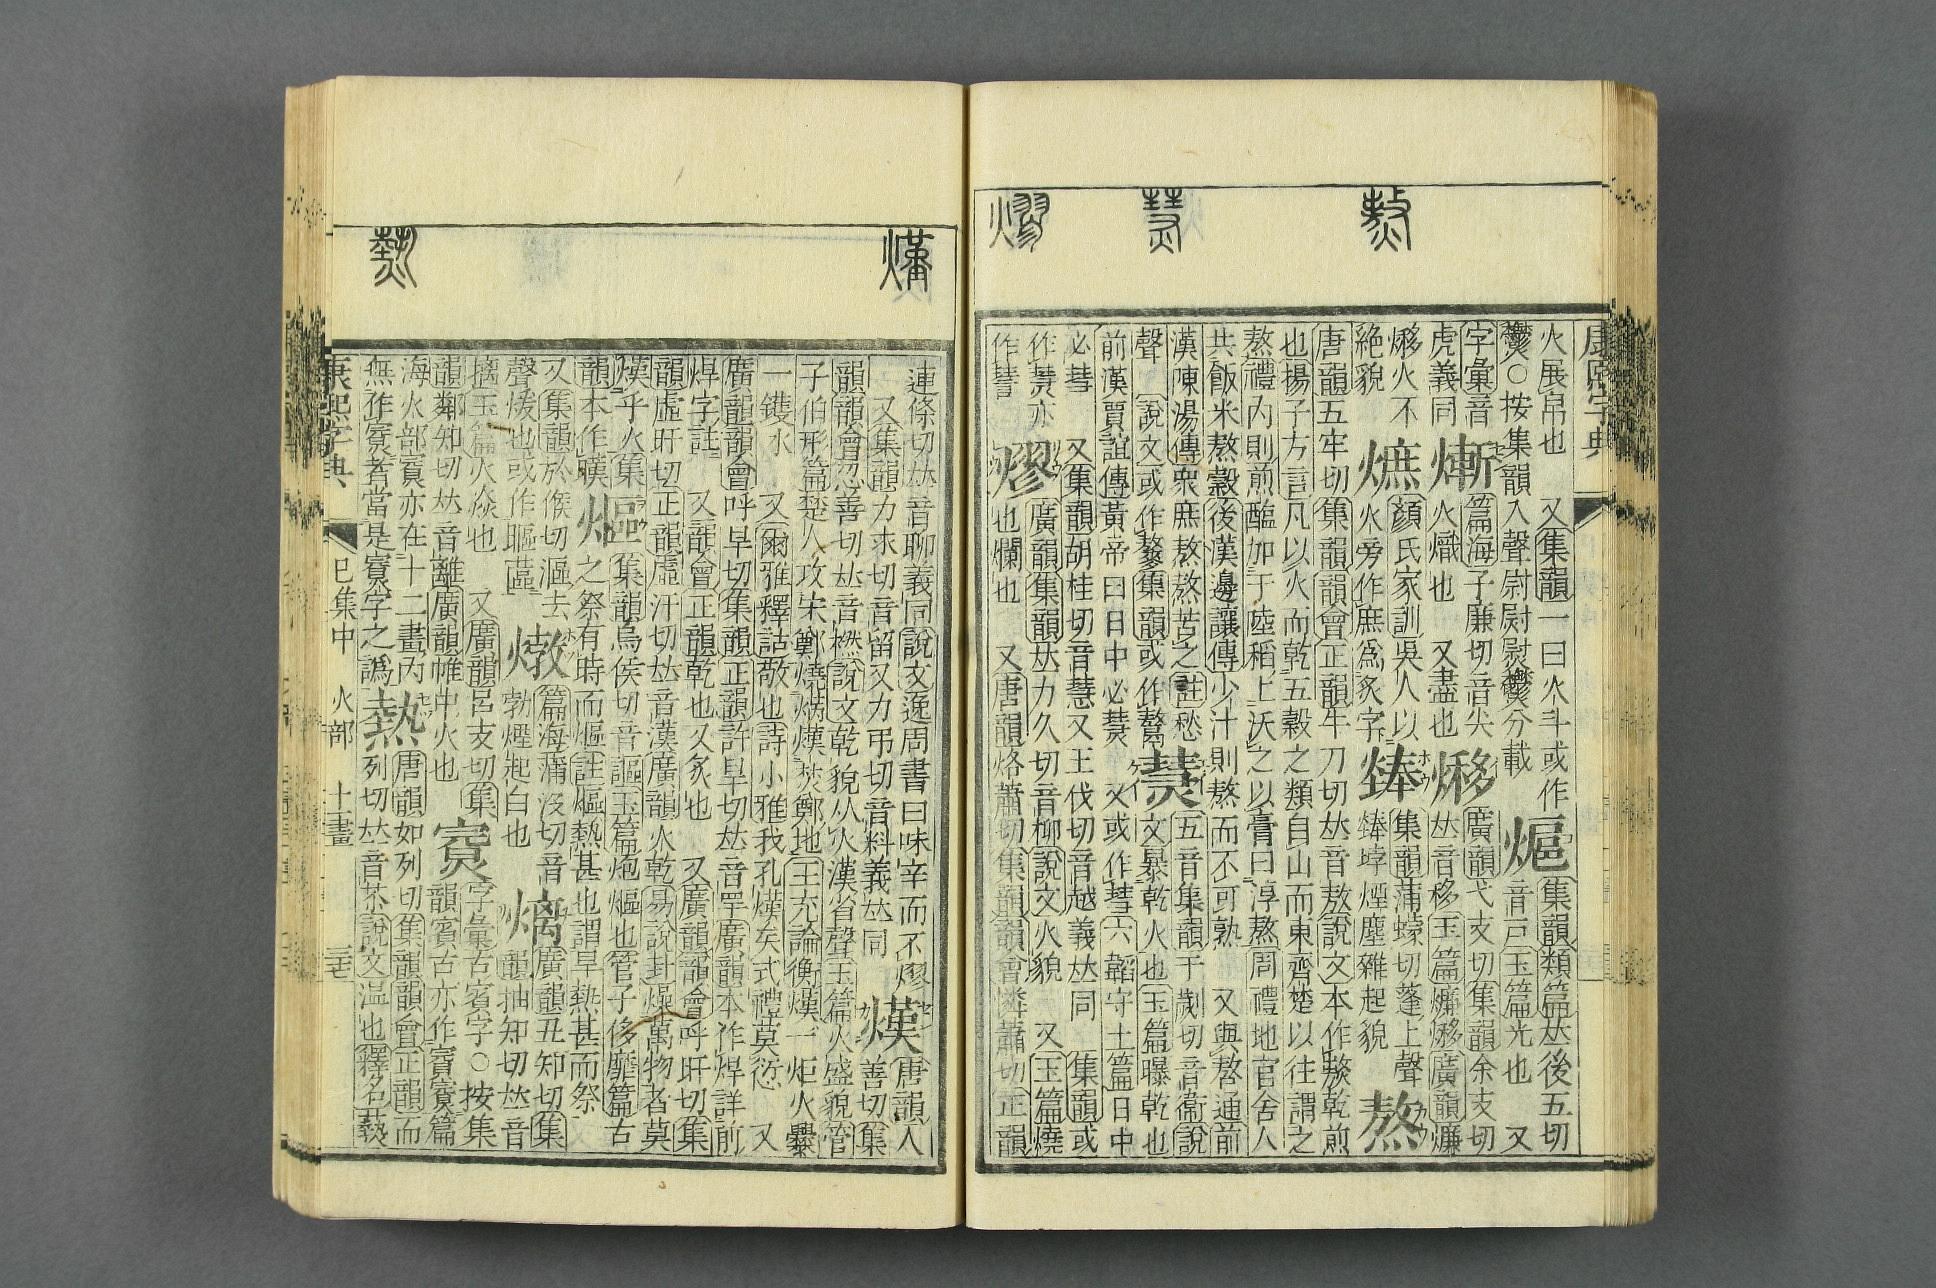 熬
熭
熮
康熙字典
火展帛也　又集韻一曰火斗或作
㷉○按集韻入聲尉尉熨㷉分載
熩
集韻類篇𠀤後五切
音戸玉篇光也　又
字彙音
篇海子廉切音尖
廣韻弋支切集韻余支切
虎義同
熸
火熾也　又盡也
熪
𠀤音移玉篇爄熪廣韻爄
熪火不
絶貌
熫
顏氏家訓吳人以
火旁作庶爲炙字
㷯
集韻蒲蠓切蓬上聲
㷯㶿煙塵雜起貌
熬
唐韻五牢切集韻韻會正韻牛刀切𠀤音敖說文本作𤏺乾煎
也揚子方言凡以火而乾五穀之類自山而東齊楚以往謂之
熬禮內則煎醢加于陸稻上沃之以膏曰淳熬周禮地官舍人
共飯米熬穀後漢邊讓傳少汁則熬而不可熟　又與嗸通前
漢陳湯傳衆庶熬熬苦之註愁
聲　說文或作䵅集韻或作鷔
熭
五音集韻于劌切音衞說
文暴乾火也玉篇曝乾也
前漢賈誼傳黃帝曰日中必熭　又或作彗六韜守土篇日中
必彗　又集韻胡桂切音慧又王伐切音越義𠀤同　集韻或
作熭亦
作暳
熮
廣韻集韻𠀤力久切音柳說文火貌　又玉篇燒
也爛也　又唐韻洛蕭切集韻韻會憐蕭切正韻
熯
熱
連條切𠀤音聊義同說文逸周書曰味辛而不熮
又集韻力求切音留又力弔切音料義𠀤同
熯
唐韻人
善切集
韻韻會忍善切𠀤音橪說文乾貌从火漢省聲玉篇火盛貌管
子伯形篇楚人攻宋鄭燒焫熯焚鄭地王充論衡熯一炬火爨
一鑊水　又爾雅釋詁敬也詩小雅我孔熯矣式禮莫愆　又
廣韻韻會呼旱切集韻正韻許旱切𠀤音罕廣韻本作焊詳前
焊字註　又韻會正韻乾也又炙也　又廣韻韻會呼旰切集
韻虛旰切正韻虛汗切𠀤音漢廣韻火乾易說卦燥萬物者莫
熯乎火集
韻本作暵
熰
集韻烏侯切音謳玉篇炮熰也管子侈靡篇古
之祭有時而熰註熰熱甚也謂旱熱甚而祭
又集韻於𠊱切漚去
聲煖也或作䁱𤎖
燉
篇海蒲沒切音
勃煙起白也
熵
廣韻丑知切集
韻抽知切𠀤音
摛玉篇火焱也　又廣韻呂支切集
韻鄰知切𠀤音離廣韻帷中火也
賨
字彙古賓字○按集
韻賓古亦作賔賨篇
海火部賨亦在十二畫內
無作賨者當是寮字之譌
熱
唐韻如列切集韻韻會正韻而
列切𠀤音苶說文温也釋名爇
康熙字典
巳集中　火部　十一畫